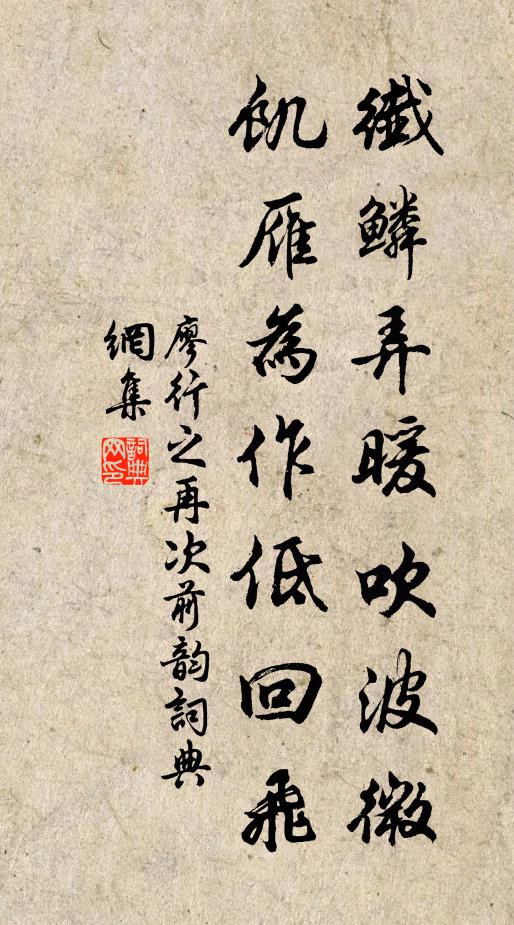 纖鱗弄暖吹波微
飢雁為作低回飛
廖行之再次前韵詞典
網集
詞典網印